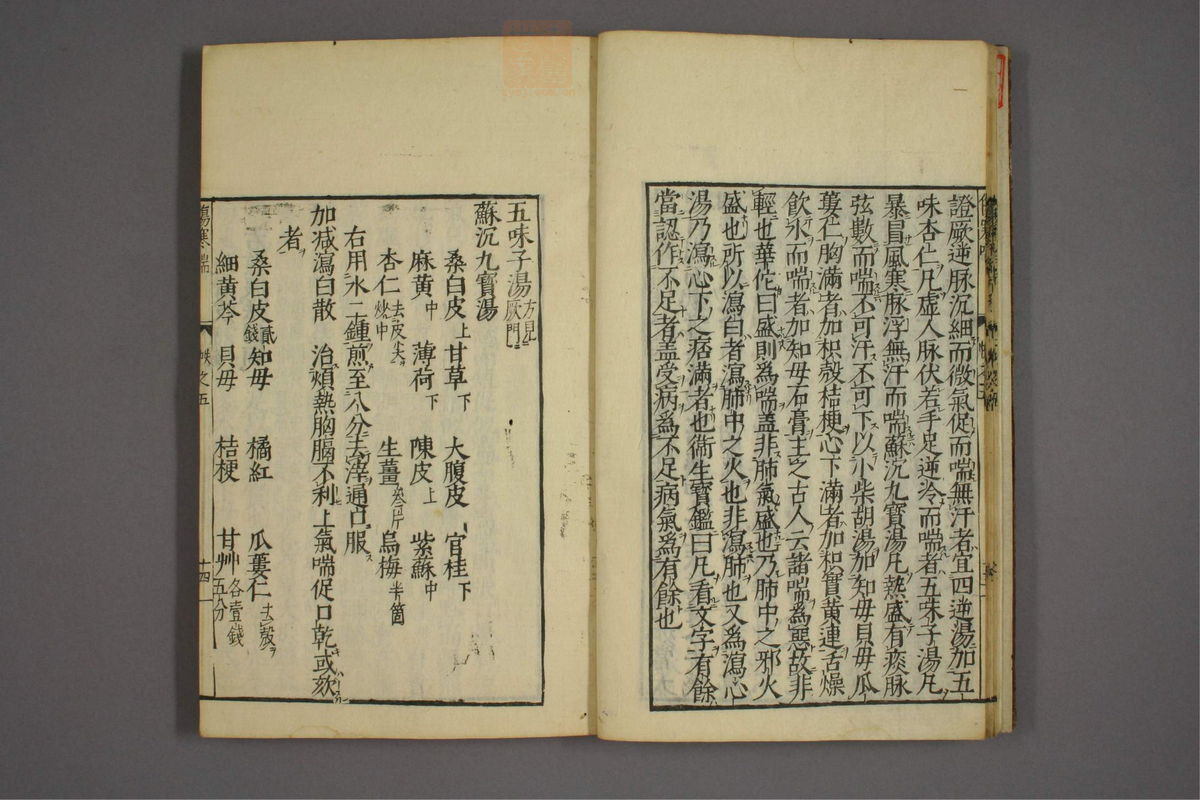 證厥逆脉沉細而微氣促而喘無汗者宜四逆湯加五
味杏仁凡虛人脉伏若手足逆冷而喘者五味子湯凡
暴冒風寒脉浮無汗而喘蘇沉九寳湯凡熱盛有痰脉
弦數而喘不可汗不可下以小柴胡湯加知毋貝毋瓜
蔞仁胸滿者加枳殼桔梗心下滿者加枳實黄連舌燥
飲水而喘者加知毋石膏主之古人云諸喘爲惡故非
輕也華佗曰盛則爲喘盖非肺氣盛也乃肺中之邪火
盛也所以瀉白者瀉肺中之火也非瀉肺也又爲瀉心
湯乃瀉心下之痞滿者也衛生寳鑑曰凡看文字有餘
當認作不足者盖受病爲不足病氣爲有餘也
五味子湯 方見厥門
蘇沉九寳湯
桑白皮上 甘草下 大腹皮 官桂下
麻黄中 薄荷下 陳皮上 紫蘇中
杏仁去皮尖炒中 生薑叁片 烏梅半箇
右用水二鍾煎至八分去滓通口服
加减瀉白散 治煩熱胸膈不利上氣喘促口乾或欬
者
桑白皮貳錢 知毋 橘紅 瓜蔞仁去殼
細黄芩 貝毋 桔梗 甘艸五分 各壹錢
傷寒喘 帙之五 十四